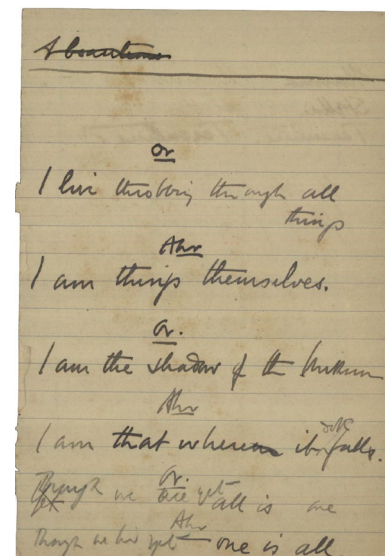 Or
I live throbbing through all
things
Ahr
I am things themselves.
Or.
I am the shadow of the
Ahr
I am that whereon it doth falls.
Or.
Though we are yet all is one
Ahr
Though we yet one is all